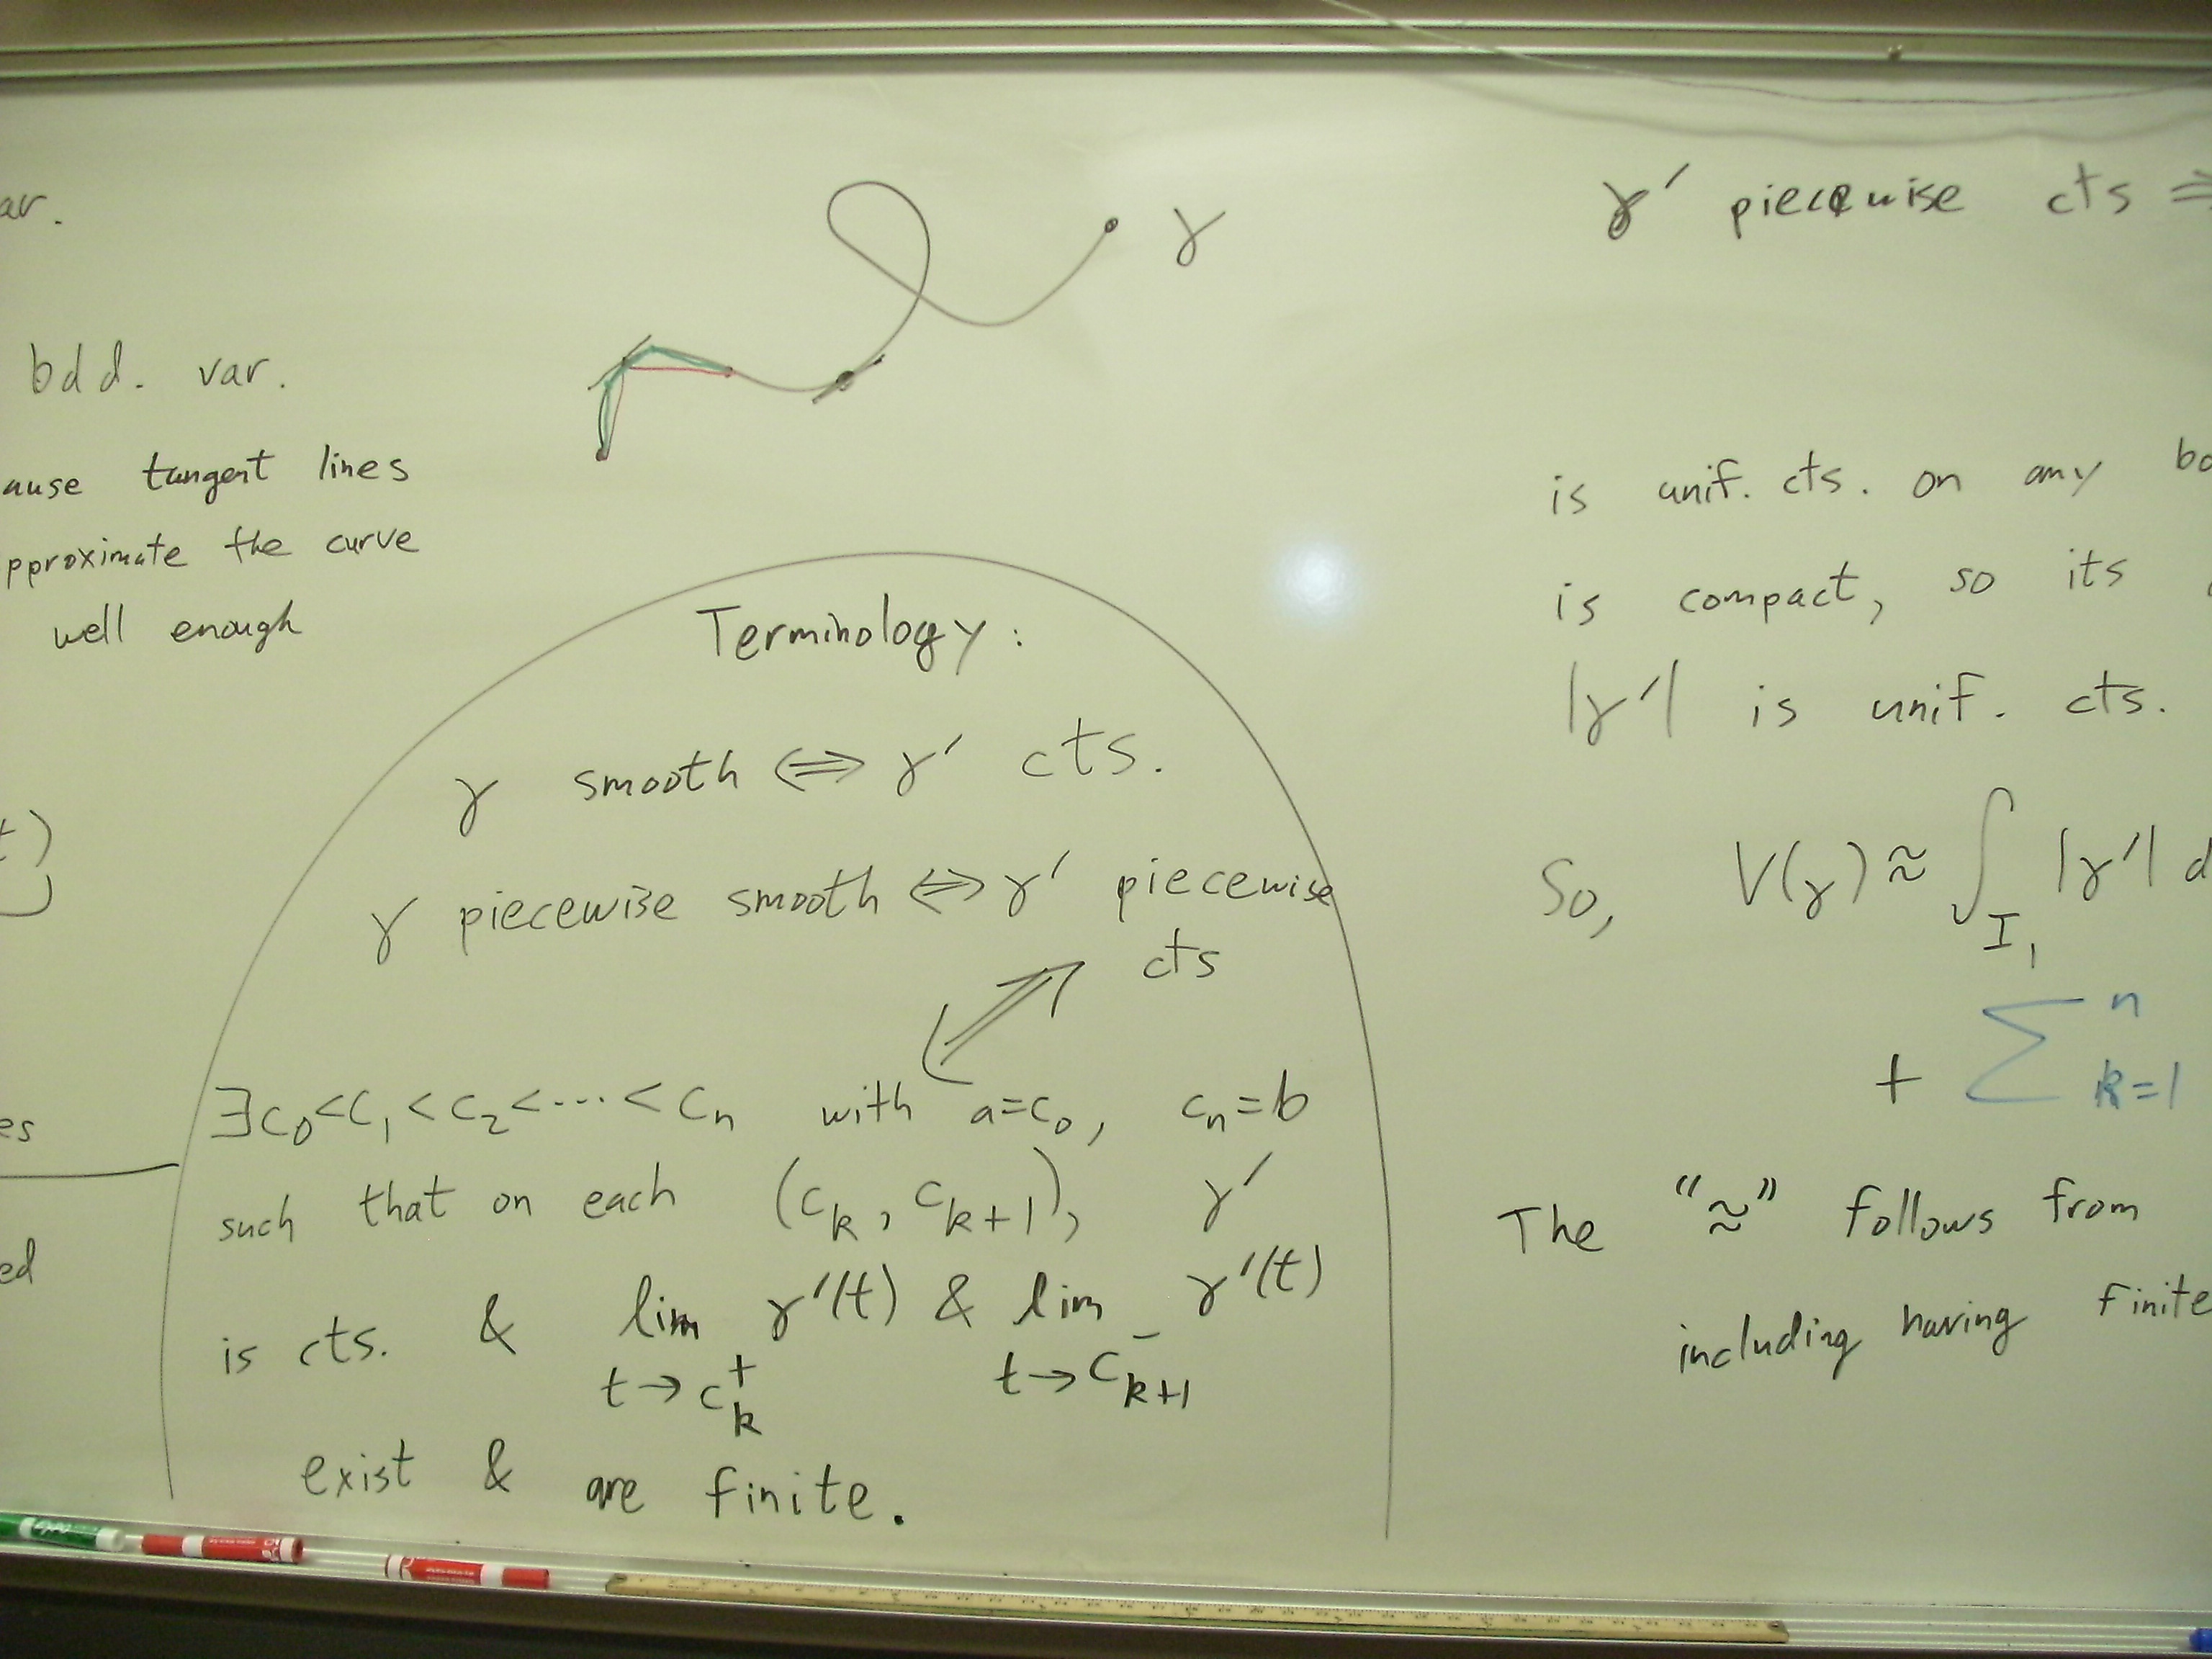 var.
bdd. var.
tangent lines
the curve
well enough
γ
Terminology:
γ smooth ⇔ γ′ cts.
γ piecewise smooth ⇔ γ′ piecewise
cts
∃c₀<c₁<c₂<⋯<cₙ with a=c₀, cₙ=b
such that on each (c_k, c_{k+1}), γ′
is cts. & lim γ′(t) & lim γ′(t)
t→c_k⁺ t→c_{k+1}⁻
exist & are finite.
γ′ piecewise cts ⇒
is unif. cts. on any
is compact, so its
|γ′| is unif. cts.
So, V(γ) ≈ ∫_{I₁} |γ′| d
+ ∑ⁿ_{k=1}
The "≈" follows from
including having finite